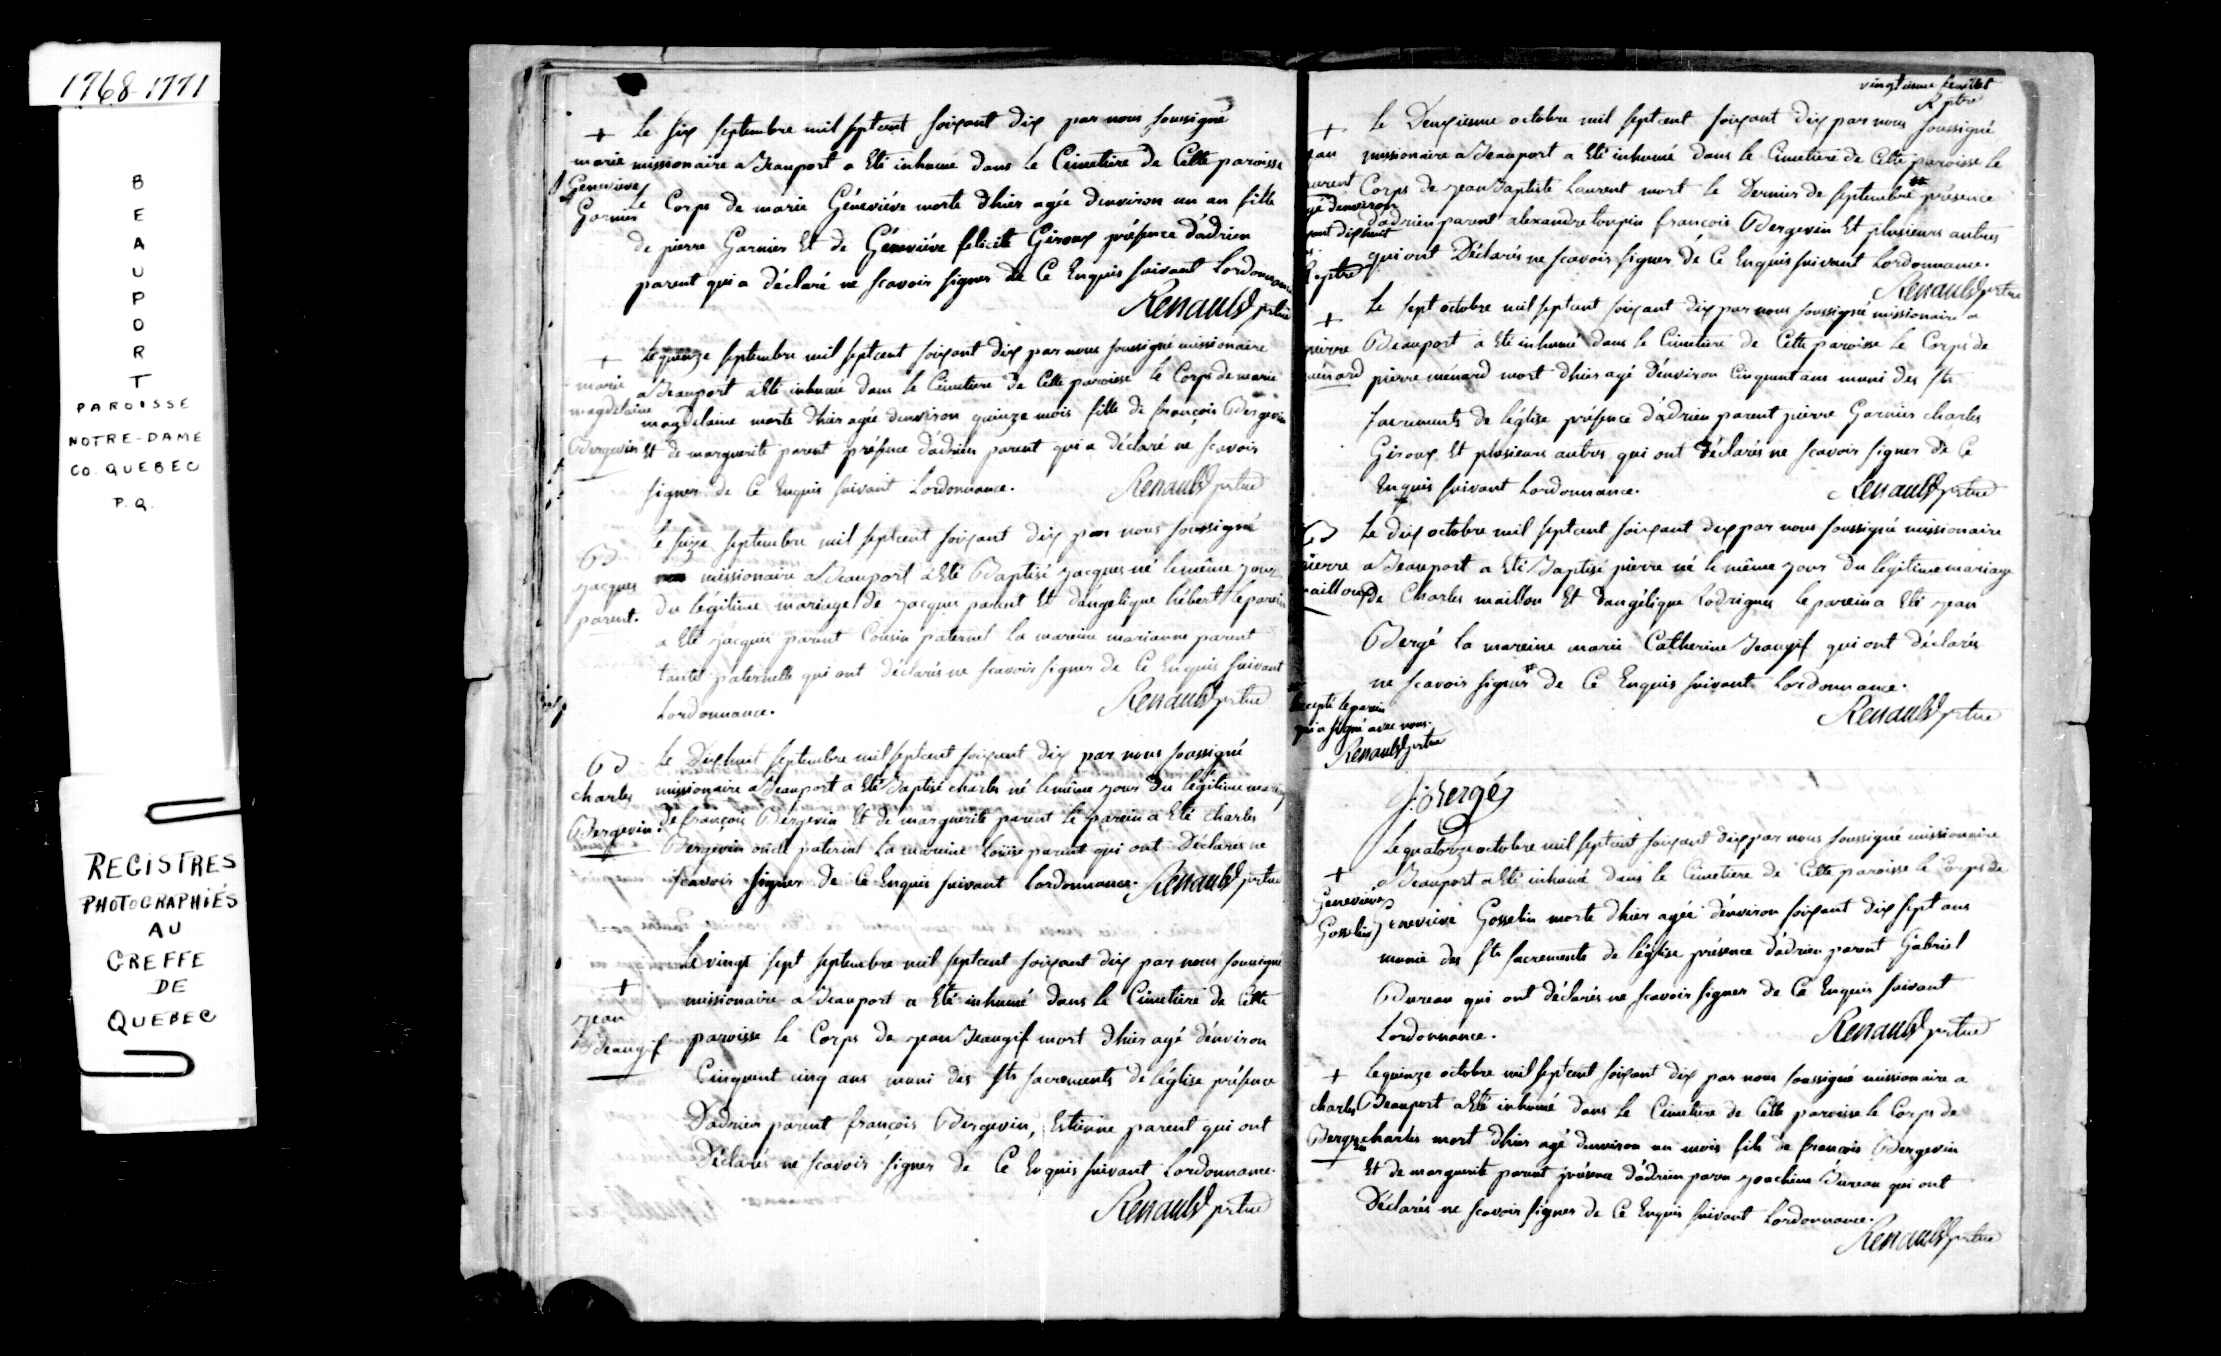 1768-1771
BEAUPORT
PAROISSE
NOTRE-DAME
CO QUEBEC
P.Q.
REGISTRES
PHOTOGRAPHIÉS
AU
GREFFE
DE
QUEBEC
+ Le six septembre mil septcent soixant dix par nous soussigné
marie missionaire a Beauport a Eté inhumé dans Le Cimetiere de Cette paroisse
Genevieve Le Corps de marie Généviéve morte d'hier agée d'environ un an fille
Garnier
de pierre Garnier Et de Généviéve felicité Giroux présence d'adrien
parent qui a déclaré ne scavoir signer de Ce Enquis suivant Lordonnance
Renauld prtre
+ Le quinze septembre mil septcent soixant dix par nous soussigné missionaire
marie a Beauport a Eté inhumé dans le Cimetiere de Cette paroisse le Corps de marie
magdelaine magdelaine morte d'hier agée denviron quinze mois fille de françois Bergevin
Bergevin Et de marguerite parent présence d'adrien parent qui a déclaré ne scavoir
signer de Ce Enquis suivant Lordonnance.
Renauld prtre
Le seize septembre mil septcent soixant dix par nous soussigné
B
jacques missionaire a Beauport a Eté Baptisé jacques né le même jour
parent. du légitime mariage de jacques parent Et d'angelique hébert le parein
a Eté jacques parent Cousin paternel La mareine marianne parent
tante paternelle qui ont déclarés ne scavoir signer de Ce Enquis suivant
Lordonnance.
Renauld prtre
B Le Dixhuit septembre mil septcent soixant dix par nous soussigné
charles missionaire a Beauport a Eté Baptisé charles né le même jour Du légitime mariage
Bergevin. de françois Bergevin Et de marguerite parent le parein a Eté charles
Bergevin oncle paternel La mareine Louise parent qui ont Déclarés ne
scavoir signer de Ce Enquis suivant Lordonnance. Renauld prtre
Le vingt sept septembre mil septcent soixant dix par nous soussigné
+ missionaire a Beauport a Eté inhumé dans le Cimetiere de Cette
jean
Beaugif paroisse le Corps de jean Beaugif mort d'hier agé d'environ
Cinquent cinq ans muni des sts sacrements de l'église présence
D'adrien parent françois Bergevin, Estienne parent qui ont
Déclarés ne scavoir signer de Ce Enquis suivant Lordonnance.
Renauld prtre
vingtieme feuillet
R ptre
+ Le Deuxiesme octobre mil septcent soixant dix par nous soussigné
missionaire a Beauport a Eté inhumé dans le Cimetiere de Cette paroisse le
Corps de jean Baptiste Laurent mort le Dernier de septembre présence
gé denviron
d'adrien parent alexandre toupin françois Bergevin Et plusieurs autres
qui ont Déclarés ne scavoir signer de Ce Enquis suivant Lordonnance.
R ptre
Renauld prtre
Le sept octobre mil septcent soixant dix par nous soussigné missionaire a
+
pierre Beauport a Eté inhumé dans le Cimetiere de Cette paroisse le Corps de
ménard pierre ménard mort d'hier agé d'environ Cinquent ans muni des sts
sacrements de l'église présence d'adrien parent pierre Garnier charles
Giroux Et plusieurs autres qui ont déclarés ne scavoir signer de Ce
Enquis suivant Lordonnance.
Renauld prtre
B Le dix octobre mil septcent soixant dix par nous soussigné missionaire
pierre a Beauport a Eté Baptisé pierre né le même jour Du légitime mariage
maillou de Charles maillou Et d'angélique Rodrigues le parein a Eté jean
Bergé la mareine marie Catherine Beaugif qui ont déclarés
ne scavoir signer de Ce Enquis suivant Lordonnance.
Renauld prtre
Excepté le parein
qui a signé avec nous.
Renauld prtre
J: Bergé
Le quatorze octobre mil septcent soixant dix par nous soussigné missionaire
+ a Beauport a Eté inhumé dans le Cimetiere de Cette paroisse le Corps de
Genevieve
Gosselin Genevieve Gosselin morte d'hier agée d'environ soixant dix sept ans
munie des sts sacrements de l'église présence d'adrien parent Gabriel
Bureau qui ont déclarés ne scavoir signer de Ce Enquis suivant
Lordonnance.
Renauld prtre
+ Le quinze octobre mil septcent soixant dix par nous soussigné missionaire a
charles Beauport a Eté inhumé dans Le Cimetiere de Cette paroisse le Corps de
Bergevin charles mort d'hier agé denviron un mois fils de françois Bergevin
Et de marguerite parent présence d'adrien parent joachim Bureau qui ont
Déclarés ne scavoir signer de Ce Enquis suivant Lordonnance.
Renauld prtre